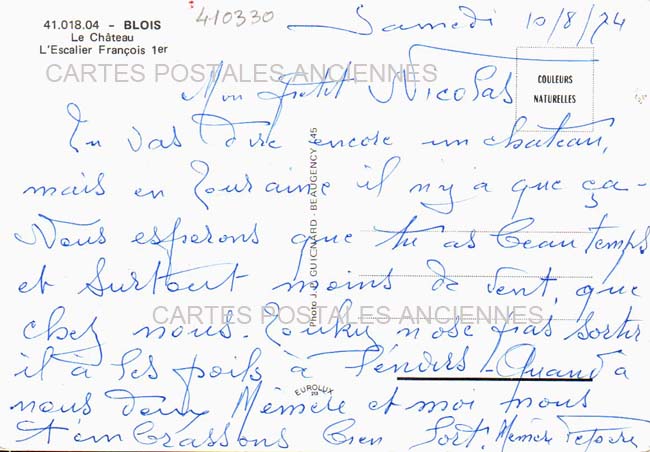 41.018.04 - BLOIS
Le Château
L'Escalier François 1er
410330
Samedi 10/8/74
COULEURS
NATURELLES
CARTES POSTALES ANCIENNES
Mon petit Nicolas
Tu vas dire encore un chateau,
mais en Touraine il n'y a que ça -
Nous esperons que tu as beau temps
et surtout moins de vent, que
chez nous. Zouky n'ose pas sortir
il à les poils à l'envers - Quand à
nous deux Mémère et moi nous
t'embrassons bien fort. Mémère
Photo J.C. GUIGNARD - BEAUGENCY (45
CARTES POSTALES ANCIENNES
EUROLUX